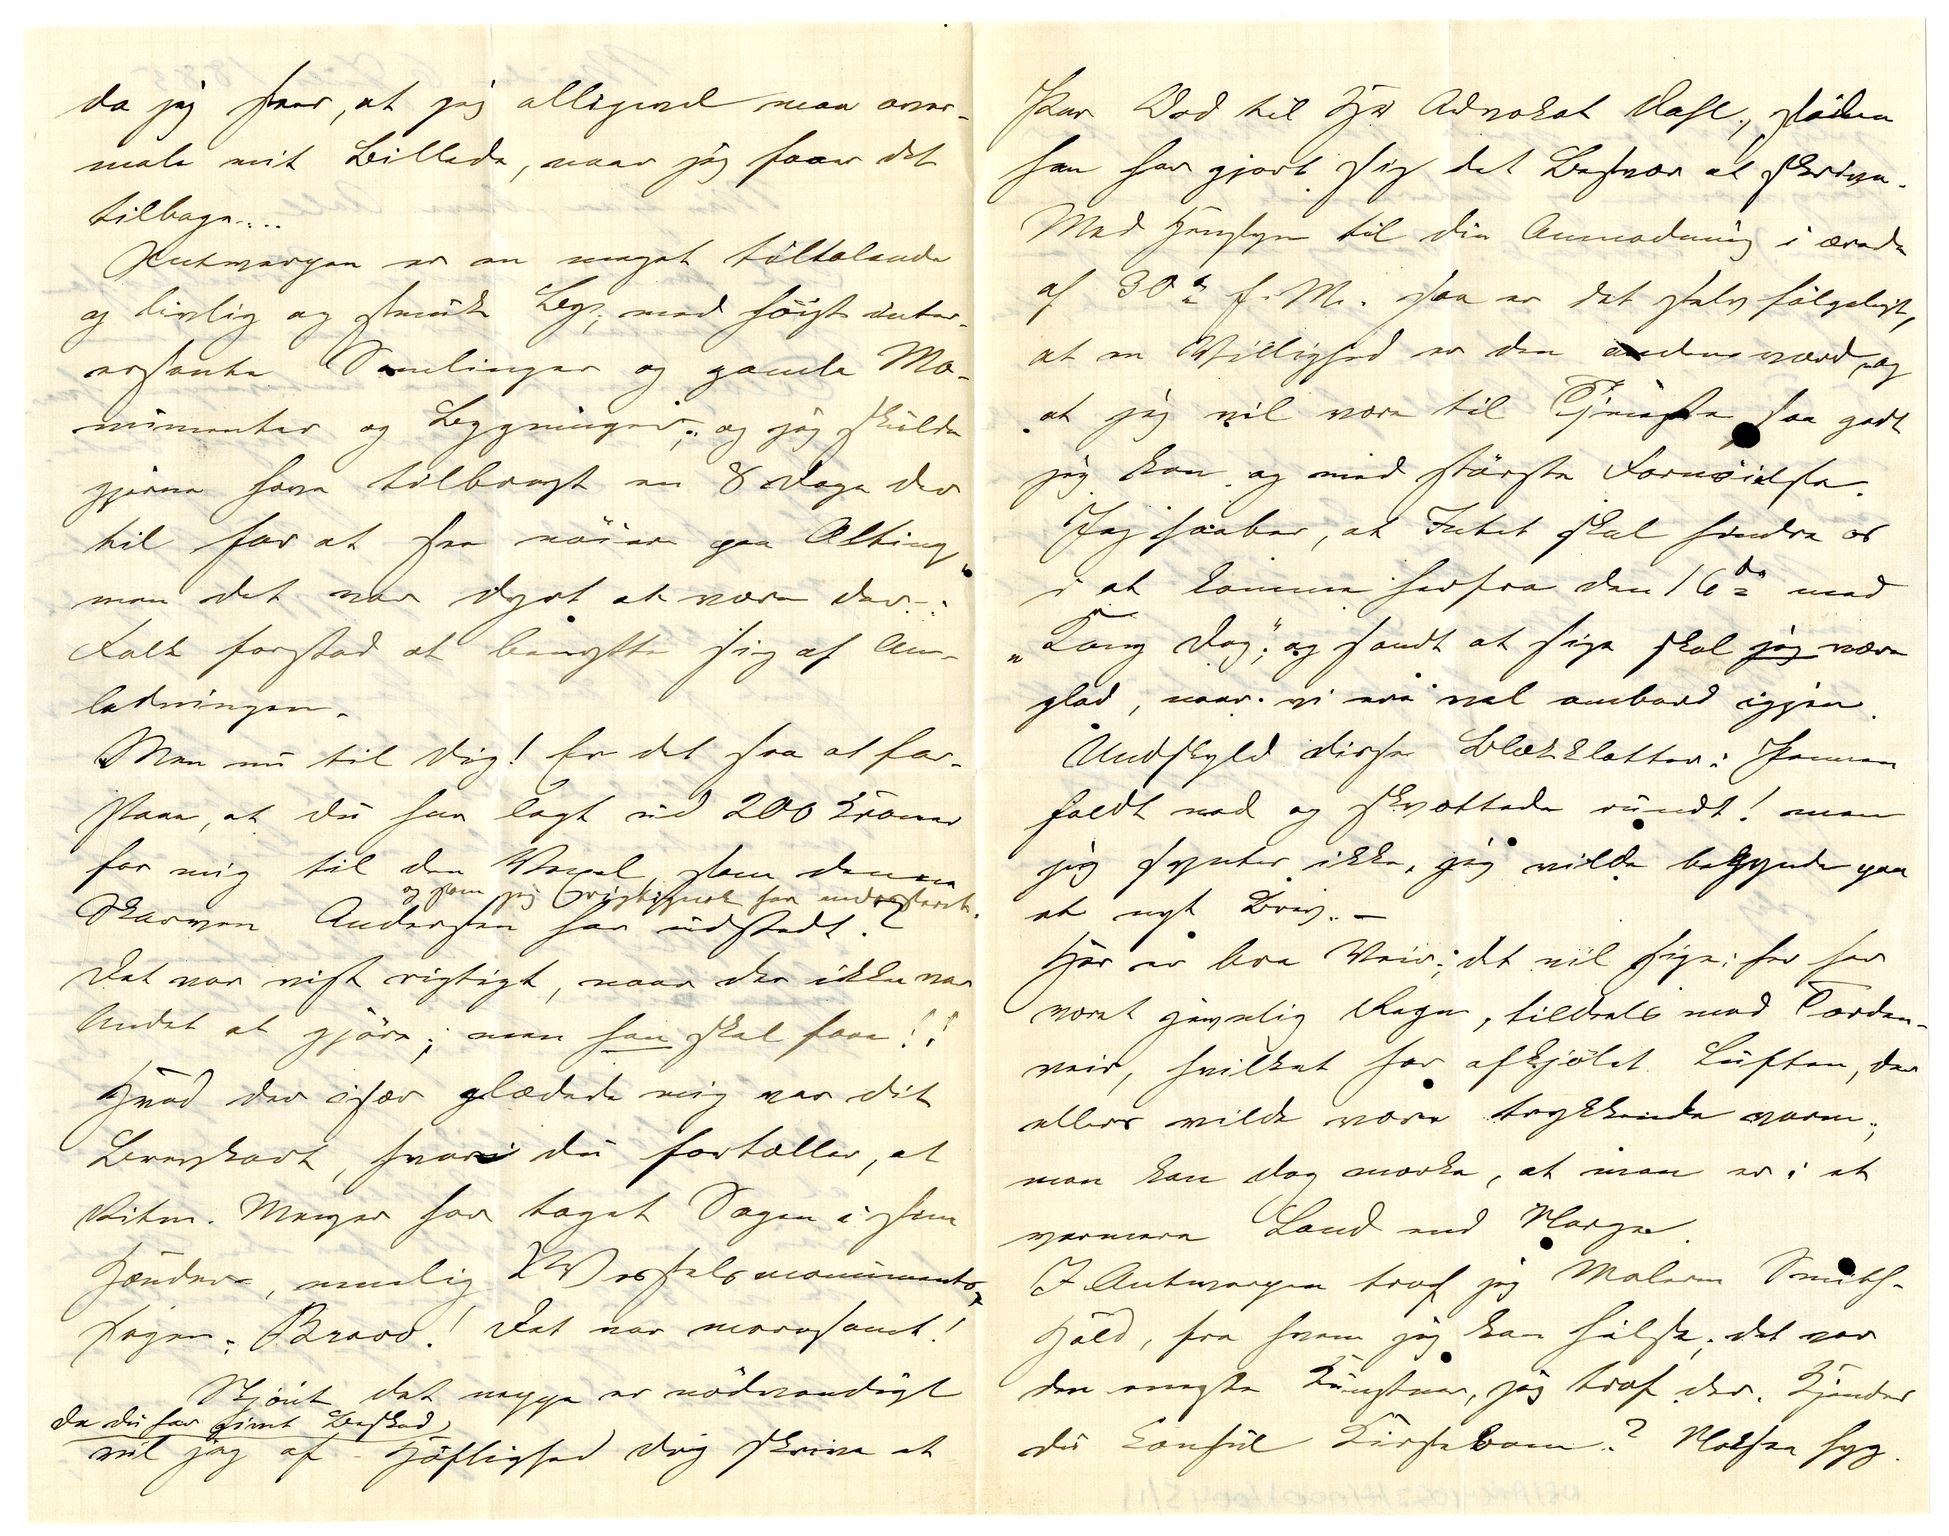 da jeg ser, at jeg alligevel maa over-
male mit Billede, naar jeg faar det
tilbage....
Antwerpen er en meget tiltalende
og livlig og smuk By, med höist inter-
essante Samlinger og gamle Mo-
numenter og Bygninger; og jeg skulde
gjerne have tilbragt en 8 Dage der
til for at see nöiere paa Alting,
men det var dyrt at være der.:
Folk forstod at benytte sig af An-
ledningen.
Men nu til Dig! Er det saa at for-
staae, at du har lagt ud 200 Kroner
for mig til den Vexel, som denne
og som jeg rigtignok har underskrevet.
Skarven Andersen har udstedt?
Det var vist rigtigt, naar der ikke var
Andet at gjöre; men han skal faae!!
Hvad der især glædede mig var dit
Brevkort, hvori du fortæller, at
Ritm. Meyer har taget Sagen i sine
Hænder, nemlig Wesselsmonuments-
sagen. Bravo! Det var morsomt!
Skjönt det neppe er nödvendigt
da du har givet Besked,
vil jeg af Höflighed dog skrive et
Par Ord til Hr Advokat Dahl, siden
han har gjort sig det Besvær at skrive.
Med Hensyn til din Anmodning i ærede
af 30te f. M. saa er det selvfölgeligt,
at en Villighed er den anden værd, og
at jeg vil være til Tjeneste saa godt
jeg kan og med störste Fornöielse.
Jeg haaber, at Intet skal hindre os
i at komme herfra den 16de med
"Kong Dag"; og sandt at sige skal jeg være
glad, naar vi ere vel ombord igjen.
Undskyld disse Blækklatter: Pennen
faldt ned og skvættede rundt! men
jeg synter ikke, jeg vilde begynde paa
et nyt Brev. –
Her er bra Veir; det vil sige: her har
været jevnlig Regn, tildeels med Torden-
veir, hvilket har afkjölet Luften, der
ellers vilde være trykkende varm;
man kan dog mærke, at man er i et
varmere Land end Norge.
I Antwerpen traf jeg Maleren Smith-
Hald, fra hvem jeg kan hilse; det var
den eneste Kunstner, jeg traf der. Kjender
du Konsul Kirsebom? Nokså hyg.